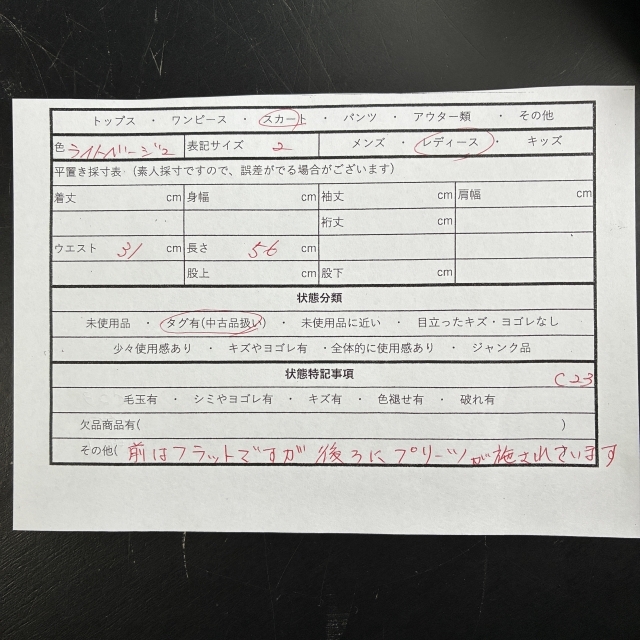 トップス ・ ワンピース ・ スカート ・ パンツ ・ アウター類 ・ その他
色 ライトベージュ 表記サイズ 2 メンズ ・ レディース ・ キッズ
平置き採寸表（素人採寸ですので、誤差がでる場合がございます）
着丈 cm 身幅 cm 袖丈 cm 肩幅 cm
裄丈 cm
ウエスト 31 cm 長さ 56 cm
股上 cm 股下 cm
状態分類
未使用品 ・ タグ有(中古品扱い) ・ 未使用品に近い ・ 目立ったキズ・ヨゴレなし
少々使用感あり ・ キズやヨゴレ有 ・全体的に使用感あり ・ ジャンク品
状態特記事項
C23
毛玉有 ・ シミやヨゴレ有 ・ キズ有 ・ 色褪せ有 ・ 破れ有
欠品商品有( )
その他( 前はフラットですが 後ろにプリーツが施されています